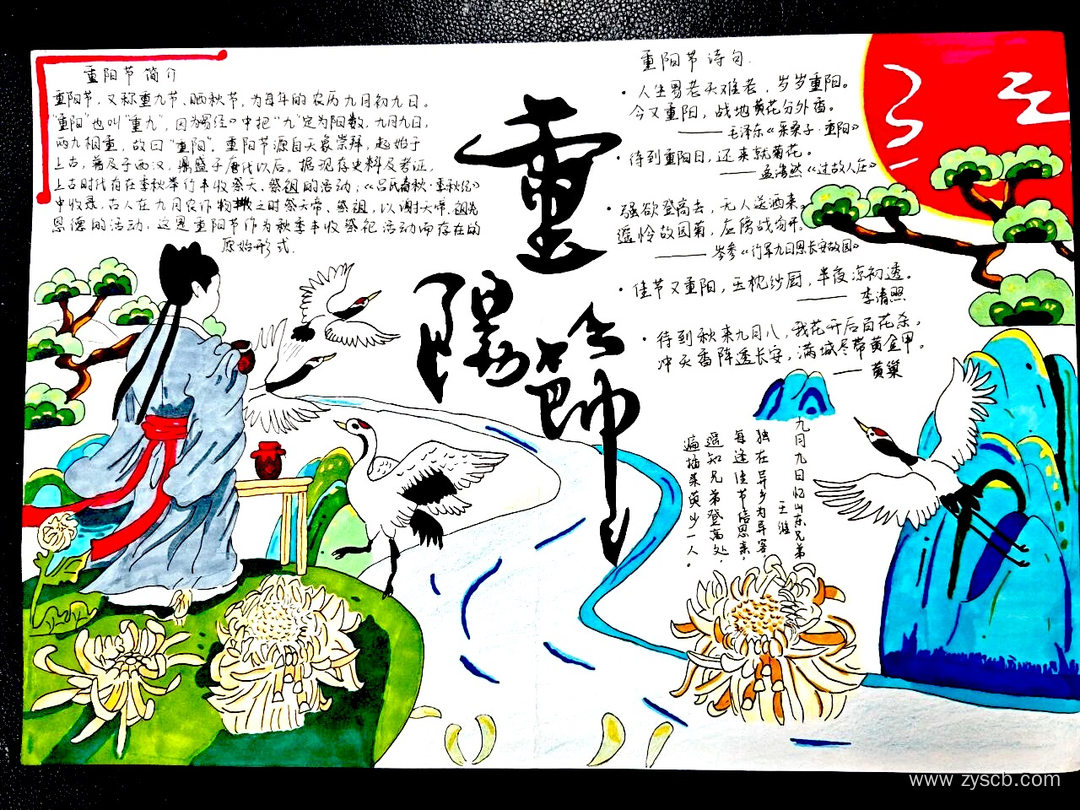 重阳节简介
重阳节，又称重九节、晒秋节，为每年的农历九月初九日。
"重阳"也叫"重九"，因为《易经》中把"九"定为阳数，九月九日，
两九相重，故曰"重阳"。重阳节源自天象崇拜，起始于
上古，普及于西汉，鼎盛于唐代以后。据现存史料及考证，
上古时代有在季秋举行丰收祭天、祭祖的活动；《吕氏春秋·季秋纪》
中收录，古人在九月农作物 之时祭天帝、祭祖，以谢天帝、祖先
恩德的活动。这是重阳节作为秋季丰收祭祀活动而存在的
原始形式。
重陽節
重阳节诗句.
·人生易老天难老，岁岁重阳。
今又重阳，战地黄花分外香。
——毛泽东《采桑子·重阳》
·待到重阳日，还来就菊花。
——孟浩然《过故人庄》
·强欲登高去，无人送酒来。
遥怜故园菊，应傍战场开。
——岑参《行军九日思长安故园》
·佳节又重阳，玉枕纱厨，半夜凉初透。
——李清照
·待到秋来九月八，我花开后百花杀。
冲天香阵透长安，满城尽带黄金甲。
——黄巢
九月九日忆山东兄弟
王维
独在异乡为异客，
每逢佳节倍思亲，
遥知兄弟登高处，
遍插茱萸少一人。
www.zyscb.com